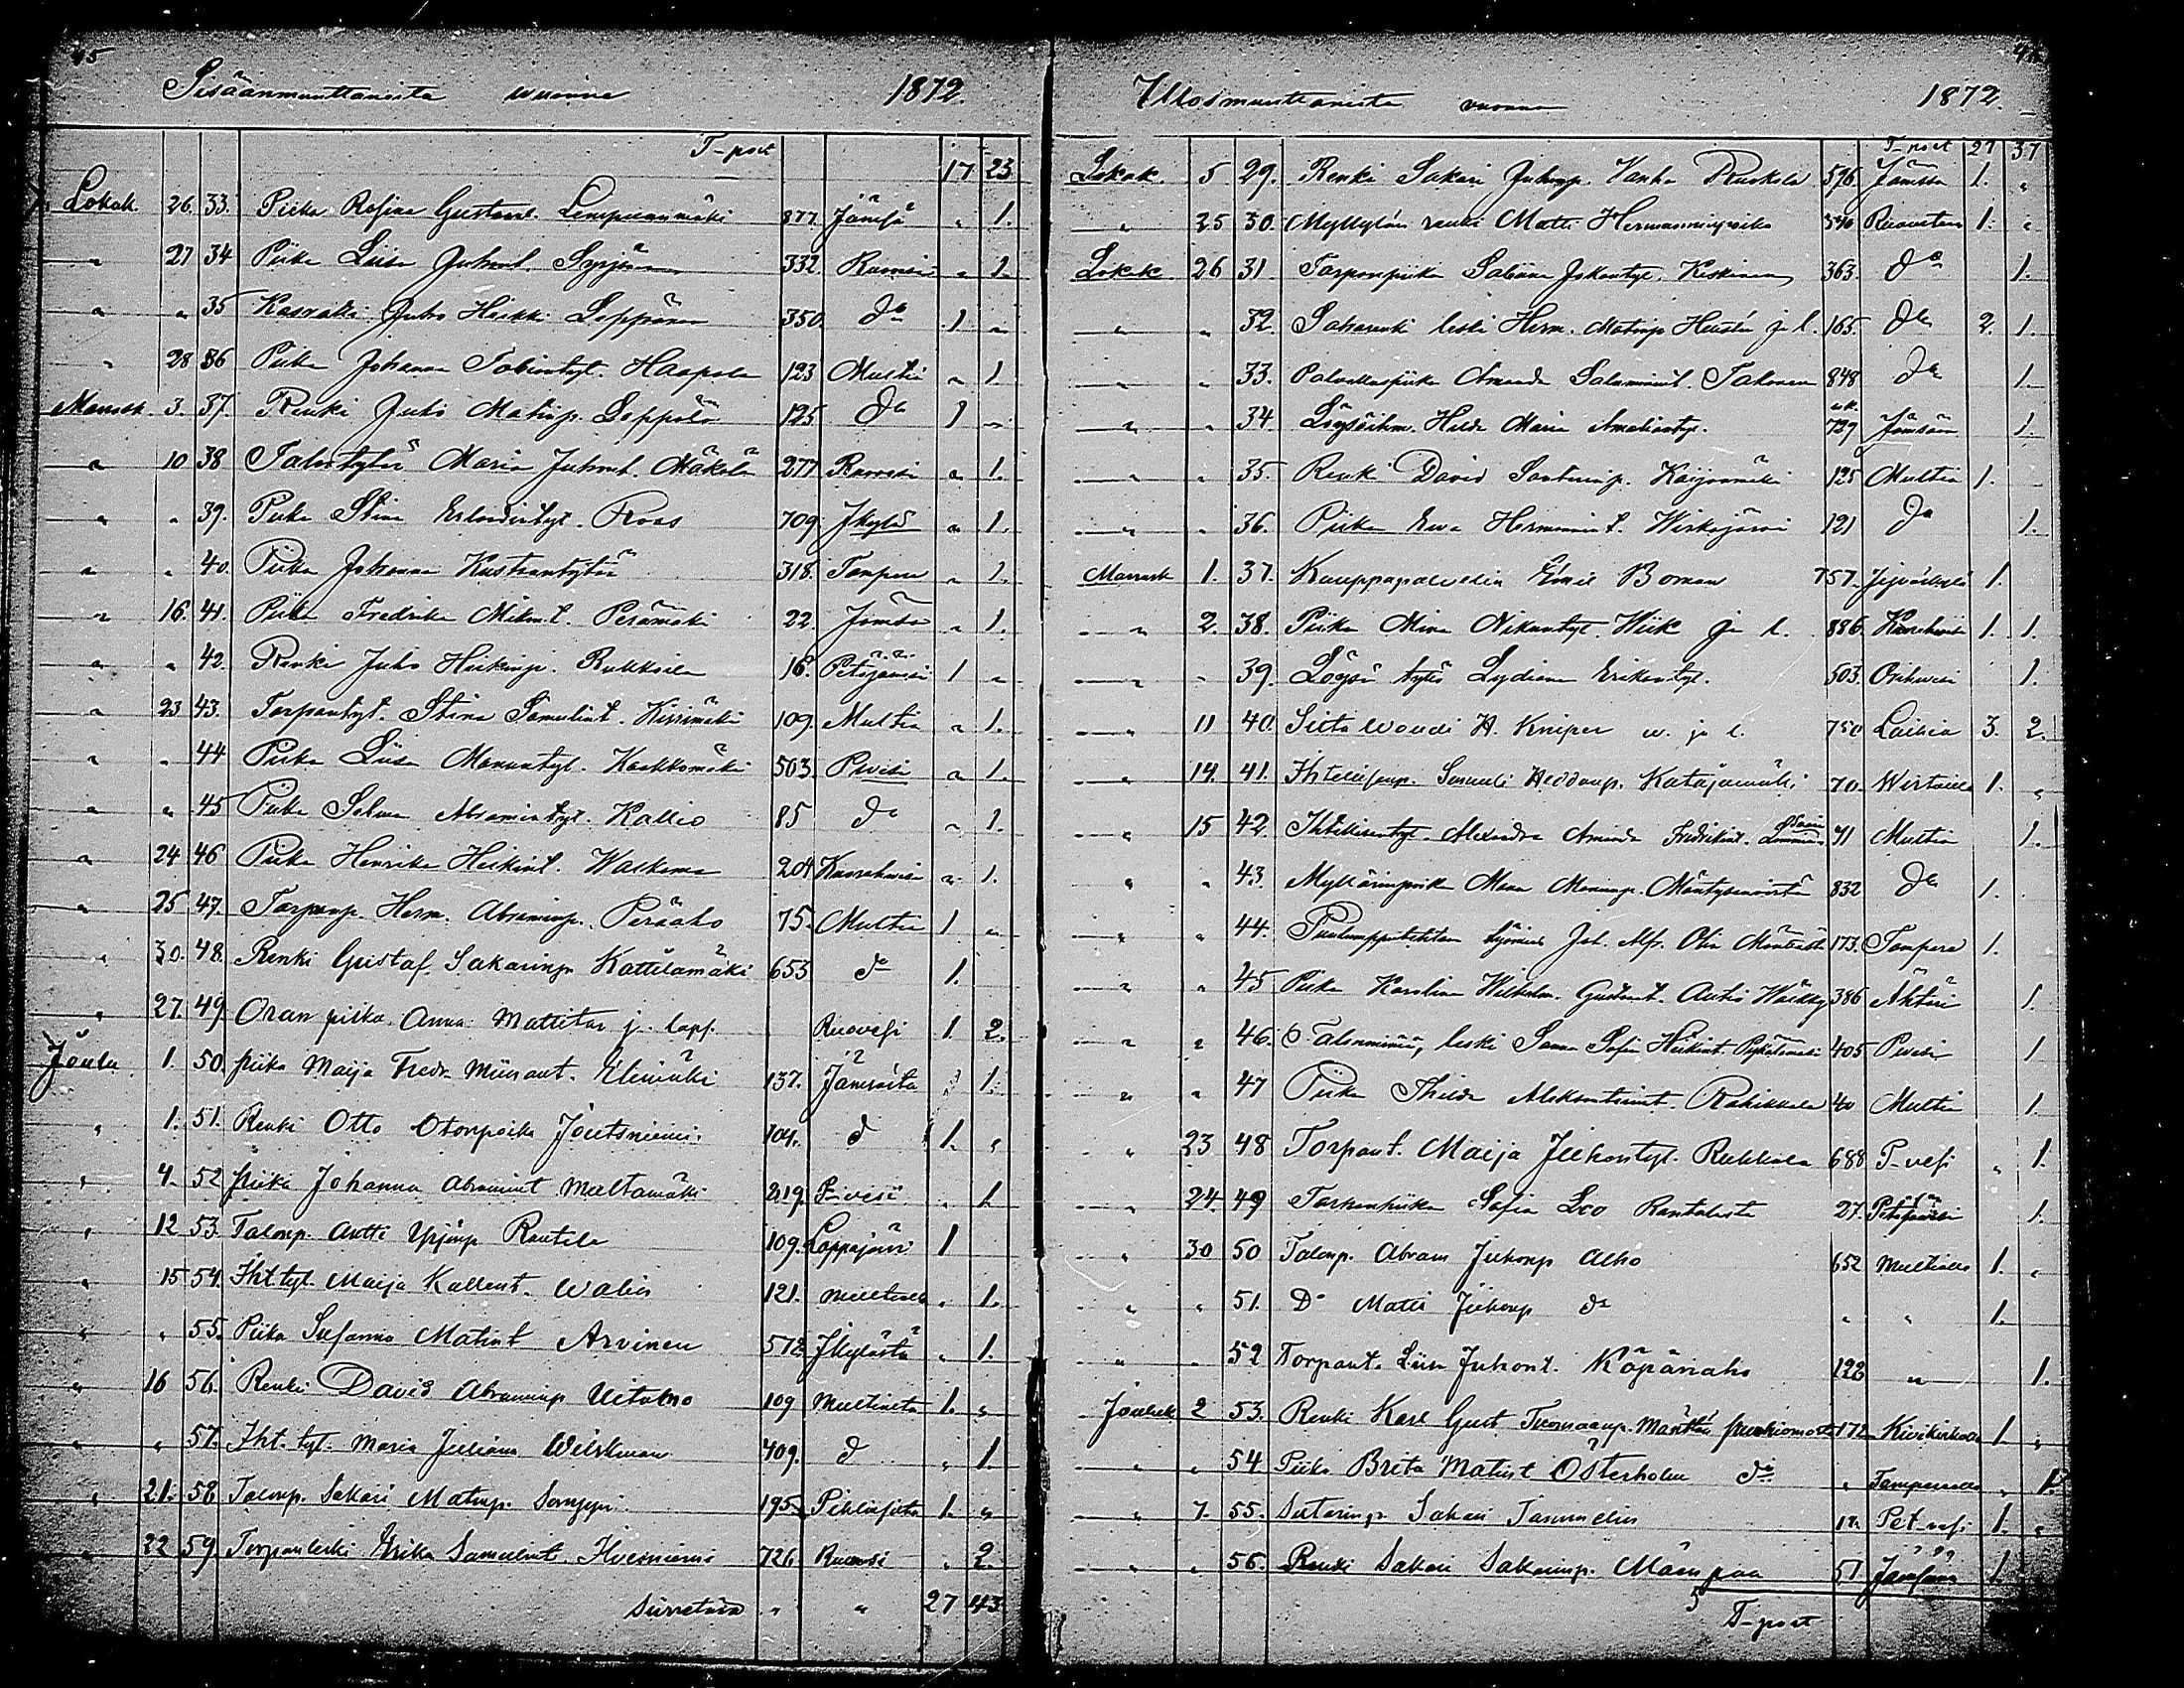 45
Sisäänmuuttaneita wuonna 1872.
T-port 17 23
Lokak. 26. 33. Piika Rosina Gustavat. Lempiänmäki 877. Jämsä " 1.
" 27 34 Piika Liisa Juhont. Syrjänen 332. Ruovesi " 1.
" " 35 Kasvatti Juho Heikki Leppänen 350 do 1 "
" 28 36 Piika Johanna Tobiantyt. Haapala 123 Multia " 1.
Marrask. 3. 37. Renki Juho Matinp. Leppälä 125 do 1 "
" 10 38 Talontytär Maria Juhont. Mäkelä 277 Ruovesi " 1.
" " 39. Piika Stina Erlandintyt. Roos 709. Jkylä " 1.
" " 40. Piika Johanna Kustaantytär 318. Tampere " 1.
" 16. 41. Piika Fredrika Mikont. Perämäki 22. Jämsä " 1.
" " 42. Renki Juho Heikinp. Rukkoila 16. Petäjävesi 1 "
" 23 43. Torpantyt. Stina Samulint. Kivimäki 109. Multia " 1.
" " 44 Piika Liisa Manuntyt. Kaakkomäki 503. Pvesi " 1.
" " 45 Piika Selma Abramintyt. Kallio 85 do " 1.
" 24 46 Piika Henrika Heikint. Walkama 204 Kuorehvesi " 1.
" 25 47. Torpanp. Herm. Abraminp. Perääho 75. Multia 1 "
" 30. 48. Renki Gustaf Sakarinp. Kattilamäki 653 do 1.
" 27. 49. Oran piika Anna Mattitar j. laps. Ruovesi 1. 2.
Joulu. 1. 50. piika Maija Fredr. Miinant. Elimäki 137. Jämsästä " 1.
" 1. 51. Renki Otto Otonpoika Joutsniemi. 104. d 1. "
" 4. 52 piika Johanna Abramint Multamäki 219. P-vesi " 1
" 12 53. Talonp. Antti Yrjönp Rautila 109. Lappajärvi 1
" 15 54. Iht.tyt. Maija Kallent. Walin 121. Multialta " 1.
" " 55. Piika Susanna Matint Arvinen 572. Jkylästä " 1.
" 16 56. Renki David Abraminp Uitalno 109 Multialta 1. "
" " 57. Iht. tyt. Maria Juliana Wilskman 409. d " 1.
" 21. 58 Talonp. Sakari Matinp. Sormppi 195. Pihlajalta 1. "
" 22 59. Torpanleski Erika Samulint. Hveiniemi 726. Ruovesi " 2
Siirretään " " 27 43

Ulosmuuttaneita vuonna 1872.
T-port 27 37
Lokak. 5. 29. Renki Sakari Juhonp. Vanha Ruokola 596 Jämsä 1. "
" 25 30. Myllylän renki Matti Hermanninpoika 540 Ruoveteen 1. "
Lokak 26 31. Torpanpiika Sabina Johantyt. Keskinen 363. do 1.
" " 32. Saharenki leski Herm. Matinp Hellstén j. l. 165. do 2. 1.
" " 33. Palvelluspiika Amanda Salomonint. Takanen 848 do 1.
" " 34 Löysöihm. Hilda Maria Amaliantyt. 729 Jämsään 1.
" " 35. Renki David Santerinp. Kaijanmäki 125 Multia 1.
" " 36. Piika Ewa Hermanint. Wirkajärvi 121 do 1.
Marrask 1. 37. Kauppapalvelia Emil Boman 757. Jyväskylä 1.
" 2. 38. Piika Mina Nikuntyt. Wiik ja l. 886. Kuorehvesi 1. 1.
" " 39. Löysi tyttö Lydiana Erikantyt. 503. Orihvesi 1.
" 11 40. Siltavouti H. Kniper w. ja l. 750 Laihia 3. 2.
" 14. 41. Ihtellisenp. Samuli Heddanp. Katajamäki 70. Wirtoille 1. "
" 15 42. Ihtellisentyt. Alexandra Amanda Fredrikint. 71 Multia 1.
" " 43. Myllärinpoika Manu Manunp. Mäntysaaresta 832 do 1.
" " 44. Puulumpputehtaan työmies Joh. Alfr. Olin Mänttästä 173. Tampere 1.
" " 45 Piika Karolina Wilhelm. Gustavt. Autio Wäkky 386 Ähtäri 1.
" " 46. Talonminiä, leski Sanna Sofia Heikint. Pyhälämäki 405 Pvesi 1
" " 47 Piika Thilda Aleksanterint. Rahikkala 40 Multia 1.
" 23 48 Torpant. Maija Juhontyt. Rukkola 688 P-vesi " 1.
" 24. 49 Torpanpiika Sofia Leo Rantalasta 27. Petäjävesi 1.
" 30 50 Talonp. Abram Juhonp Alho 652 Multialle 1. "
" " 51. Do Matti Juhonp do " " 1.
" " 52 Torpant. Liisa Juhont. Käpänaho 122 " 1.
Jouluk 2 53. Renki Karl Gust Tuomaanp. Mänttän puuhiomosta 172 Kivikirkolle 1. "
" " 54 Piika Brita Matint Österholm do " Tampereelle " 1.
" 7. 55. Suutarinp Sakari Tammelin Pet.vesi 1. "
" " 56. Renki Sakari Sakarinp. Mäenpää 51 Jämsään 1
T-port